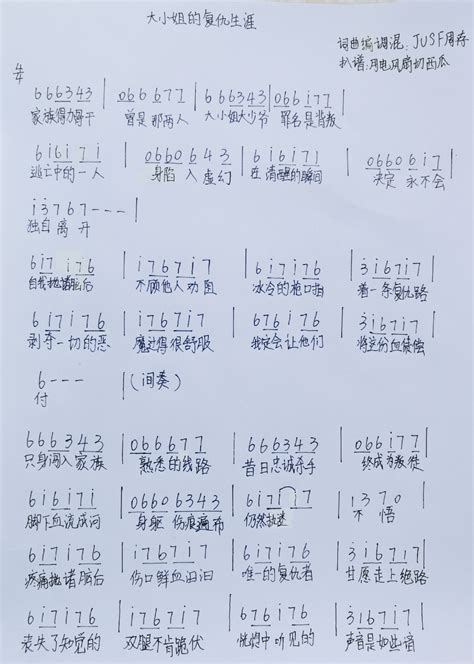 大小姐的复仇生涯
词曲编调混: JUSF周存
扒谱:用电风扇切西瓜
4/4
666343 | 066677 | 666343 | 066i77 |
家族得力骨干 曾是那两人 大小姐大少爷 罪名是背叛
6i6i7i | 0660643 | 6i6i7i | 0660 6i7 |
逃亡中的一人 身陷入虚幻 在清醒的瞬间 决定永不会
i3767--- |
独自离开
6i7 i76 | i767i7 | 6i7i76 | 3i67i7 |
自我抛诸脑后 不顾他人劝阻 冰冷的枪口指 着一条复仇路
6i7i76 | i767i7 | 676i76 | 3i67i7 |
剥夺一切的恶 魔过得很舒服 我定会让他们 将这份血债偿
6--- | (间奏)
付
666343 | 066677 | 666343 | 066i77 |
只身闯入家族 熟悉的线路 昔日忠诚杀手 终成为叛徒
6i6i7i | 06606343 | 6i7i i7 | i370 |
脚下血流成河 身躯伤痕遍布 仍然执迷 不悟
6i7i76 | i767i7 | 6i7i76 | 3i67i7 |
疼痛抛诸脑后 伤口鲜血汩汩 唯一的复仇者 甘愿走上绝路
6i7i76 | i767i7 | 676i76 | 3i67i7 |
丧失了知觉的 双腿不肯跪伏 恍惚中听见的 声音是如此宿